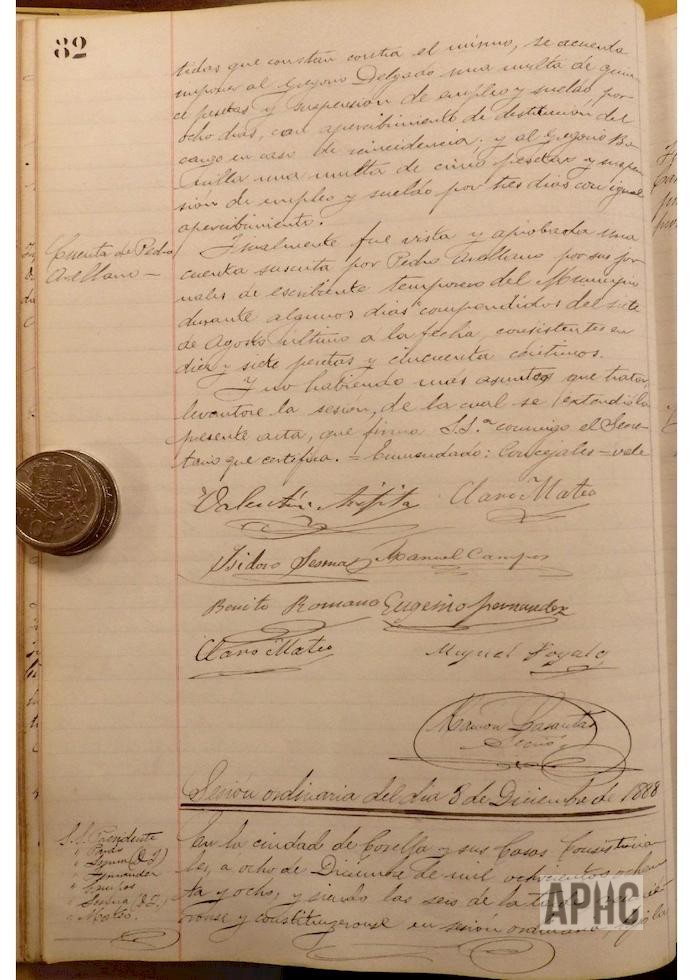 82
tidas que constan contra el mismo, se acuerda
imponer al Gregorio Delgado una multa de quin-
ce pesetas y suspensión de empleo y sueldo por
ocho días, con apercibimiento de destitución del
cargo en caso de reincidencia; y al Gregorio
una multa de cinco pesetas y suspen-
sión de empleo y sueldo por tres días con igual
apercibimiento.
Cuenta de Pedro
Arellano —
Igualmente fue vista y aprobada una
cuenta suscrita por Pedro Arellano por sus jor-
nales de escribiente temporero del Municipio
durante algunos días comprendidos del siete
de Agosto último á la fecha, consistentes en
diez y siete pesetas y cincuenta céntimos.
Y no habiendo más asuntos que tratar,
levantose la sesión, de la cual se extendió la
presente acta, que firma S.S.ª conmigo el Secre-
tario que certifica. = Enmendado: Concejales = vale
Valentín Claro Mateo
Isidoro Sesma Manuel Campos
Benito Romano Eugenio Fernandez
Claro Mateo Miguel
Ramon
Srio
Sesión ordinaria del día 8 de Diciembre de 1888
S.S. Presidente
" Sesma (D. I.)
" Fernandez
" Campos
" Sesma
" Mateo.
En la ciudad de Corella y sus Casas Consistoria-
les, a ocho de Diciembre de mil ochocientos ochen-
ta y ocho, y siendo las seis de la tarde
ronse y constituyeronse en sesión ordinaria, bajo la
APHC
50